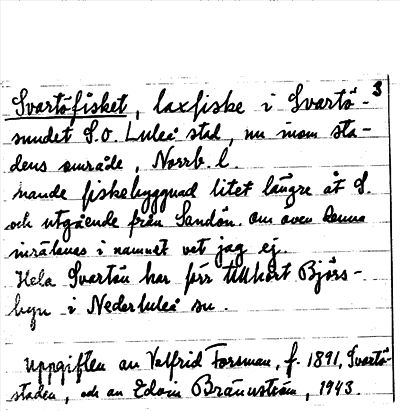 3
Svartöfisket, laxfiske i Svartö-
sundet S.O. Luleå stad, nu inom sta-
dens område, Norrb. l.
nande fiskebyggnad litet längre åt S.
och utgående från Sandön. Om även denna
inräknas i namnet vet jag ej.
Hela Svartön har förr tillhört Björs-
byn i Nederluleå sn.
Uppgiften av Valfrid Forsman, f. 1891, Svartö-
staden, och av Edvin Brännström, 1943.